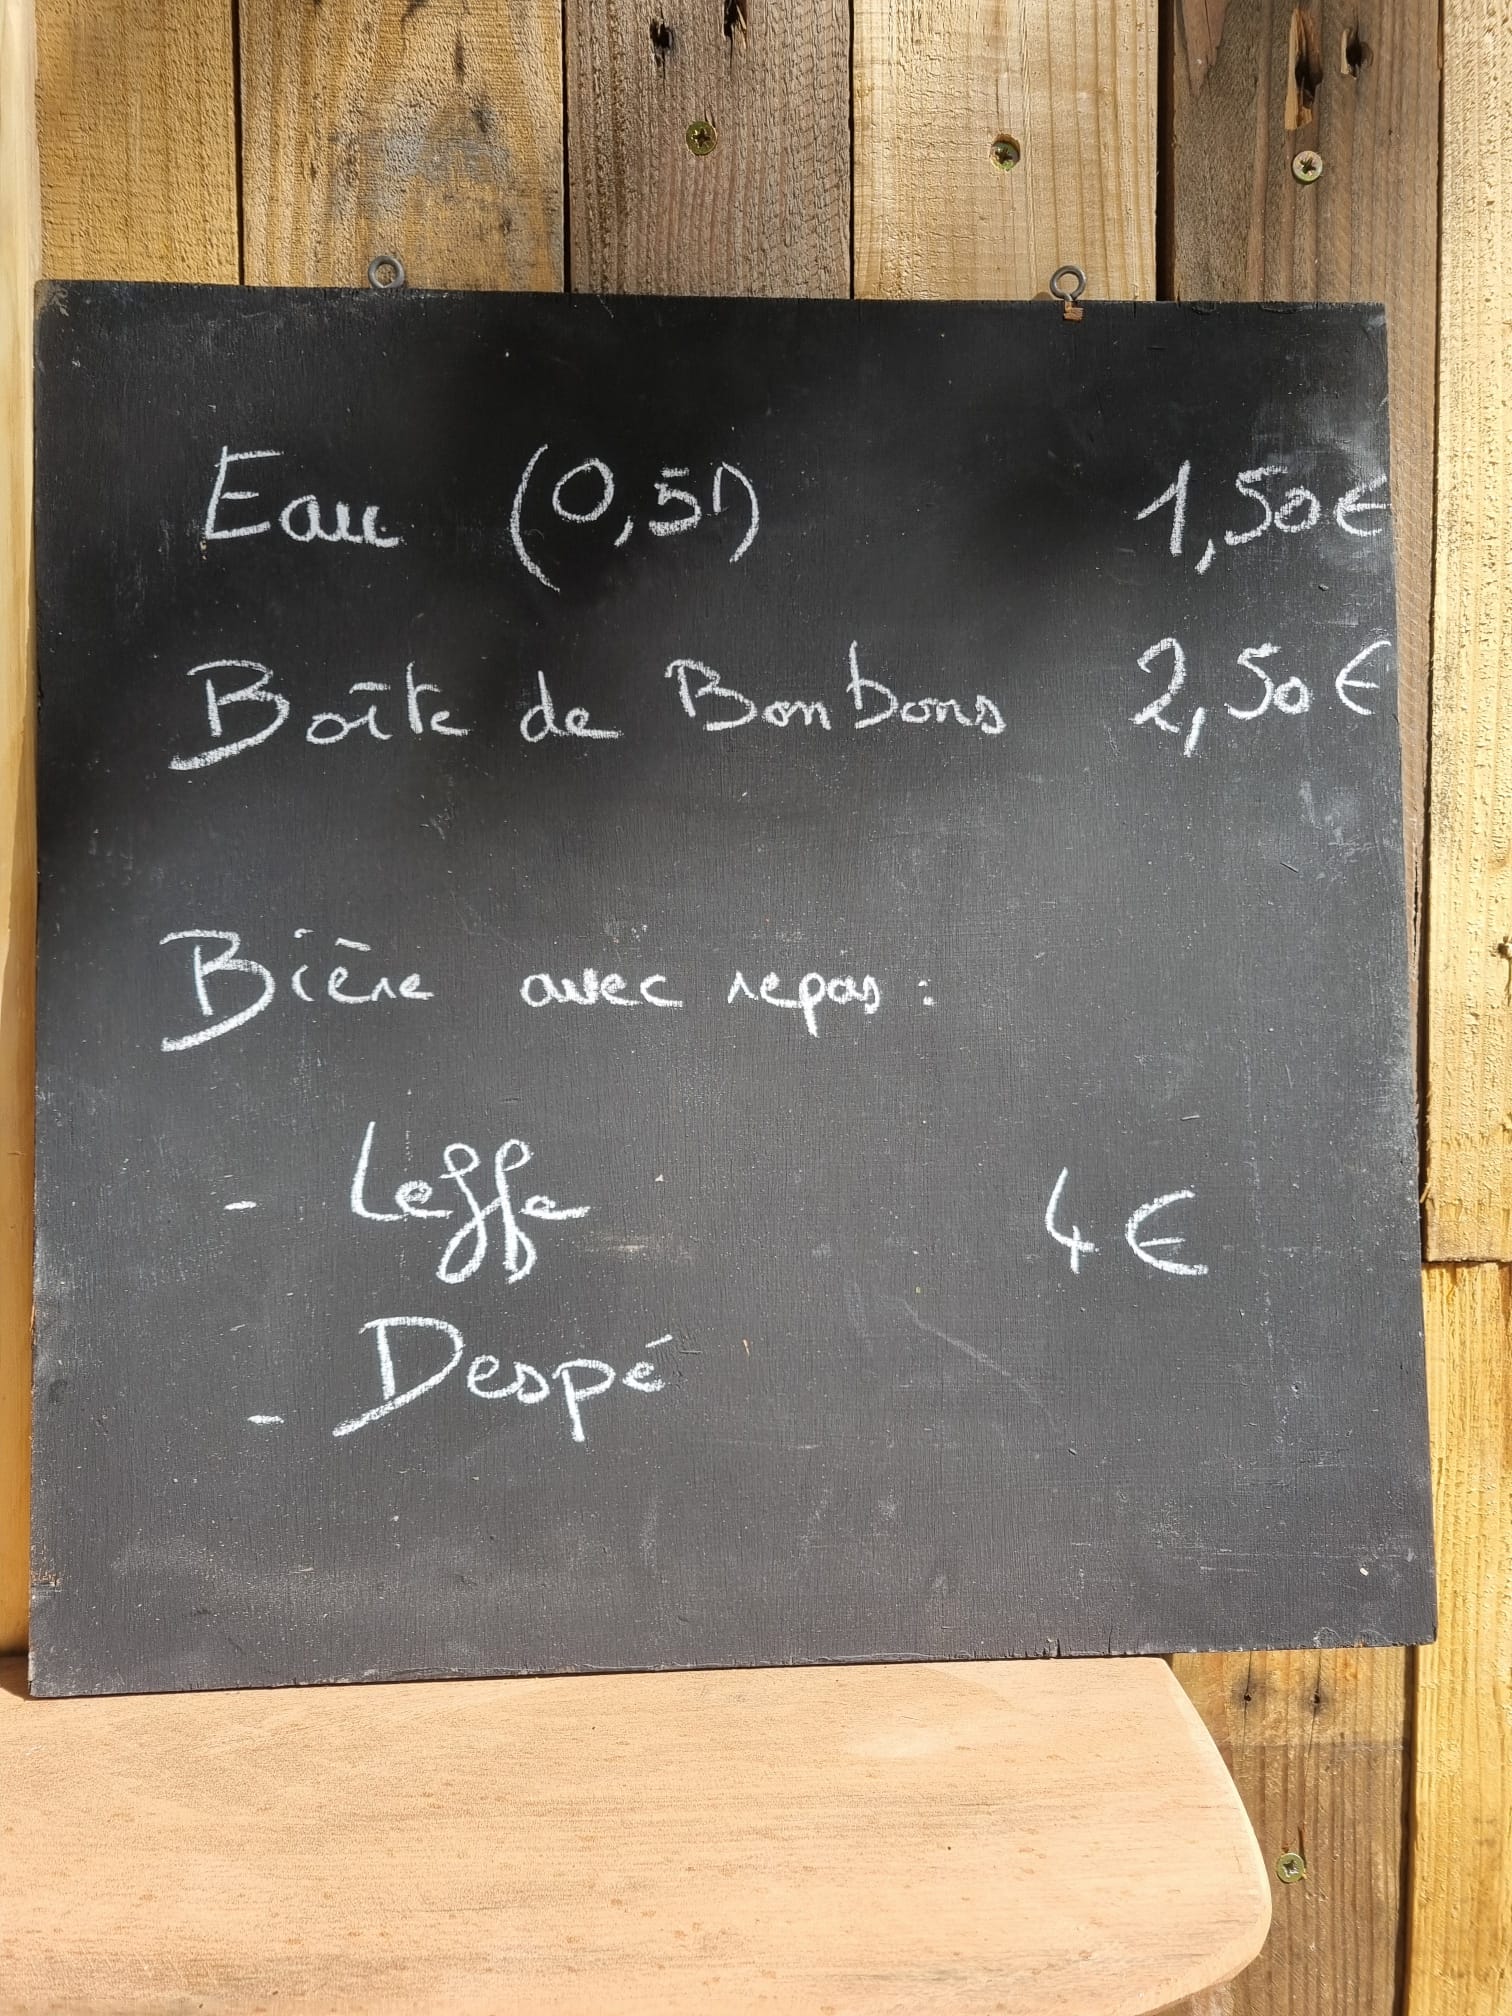 Eau (0,5l) 1,50€
Boîte de Bonbons 2,50€
Bière avec repas :
- Leffe 4€
- Despé